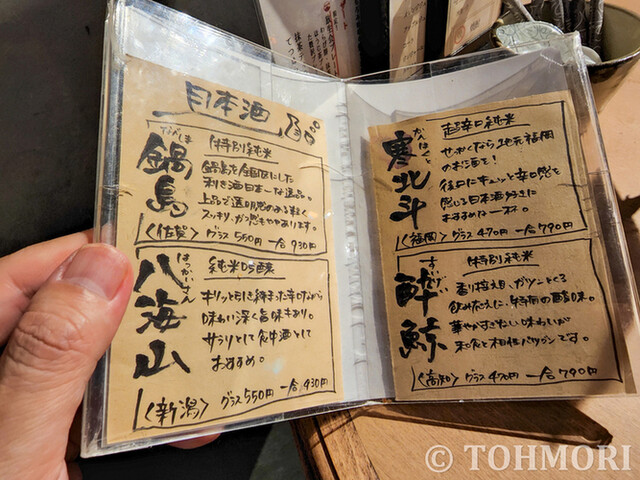 日本酒
なべしま
鍋島
特別純米
鍋島を全国区にした
利き酒日本一な逸品。
上品で透明感のある軽く
スッキリ、ガス感もややあります。
<佐賀> グラス550円 一合930円
はっかいさん
八海山
純米吟醸
キリッと引き締まった辛口ながら
味わい深く旨味もあり。
サラリとして食中酒として
おすすめ。
<新潟> グラス550円 一合930円
かんほくと
寒北斗
超辛口純米
せっかくなら、地元福岡
のお酒を!
後口にキュンと辛口感を
感じる日本酒好きに
おすすめな一杯。
<福岡> グラス470円 一合790円
すいげい
酔鯨
特別純米
香り控え目、ガツンとくる
飲みごたえに、特有の酸味。
華やかすぎない味わいが
和食と相性バツグンです。
<高知> グラス470円 一合790円
© TOHMORI